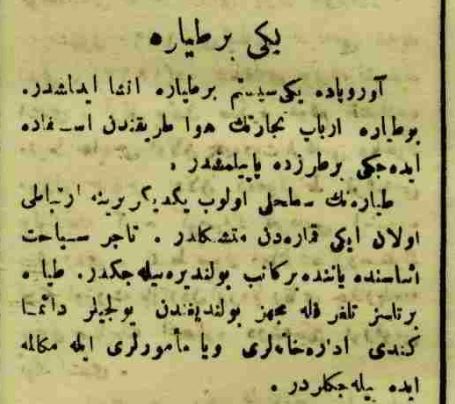 یکی بر طیاره
آوروپاده یکی سیستم برطیاره انشا ایدلشدر.
بوطیاره ارباب تجارتك هوا طریقندن استفاده
ایده‌جکی برطرزده یاپیلمشدر .
طیاره‌نك سطحلی اولوب یکدیگربرینه ارتباطی
اولان ایکی قماره‌دن متشکلدر . تاجر سیاحت
اثناسنده یاننده برکاتب بولندیره‌بیله‌جکدر. طیاره
برتلسز تلغرافله مجهز بولندیغندن یولجیلر دائما
کندی اداره‌خانه‌لری ویا مأمورلری ایله مکالمه
ایده بیله‌جکلردر .